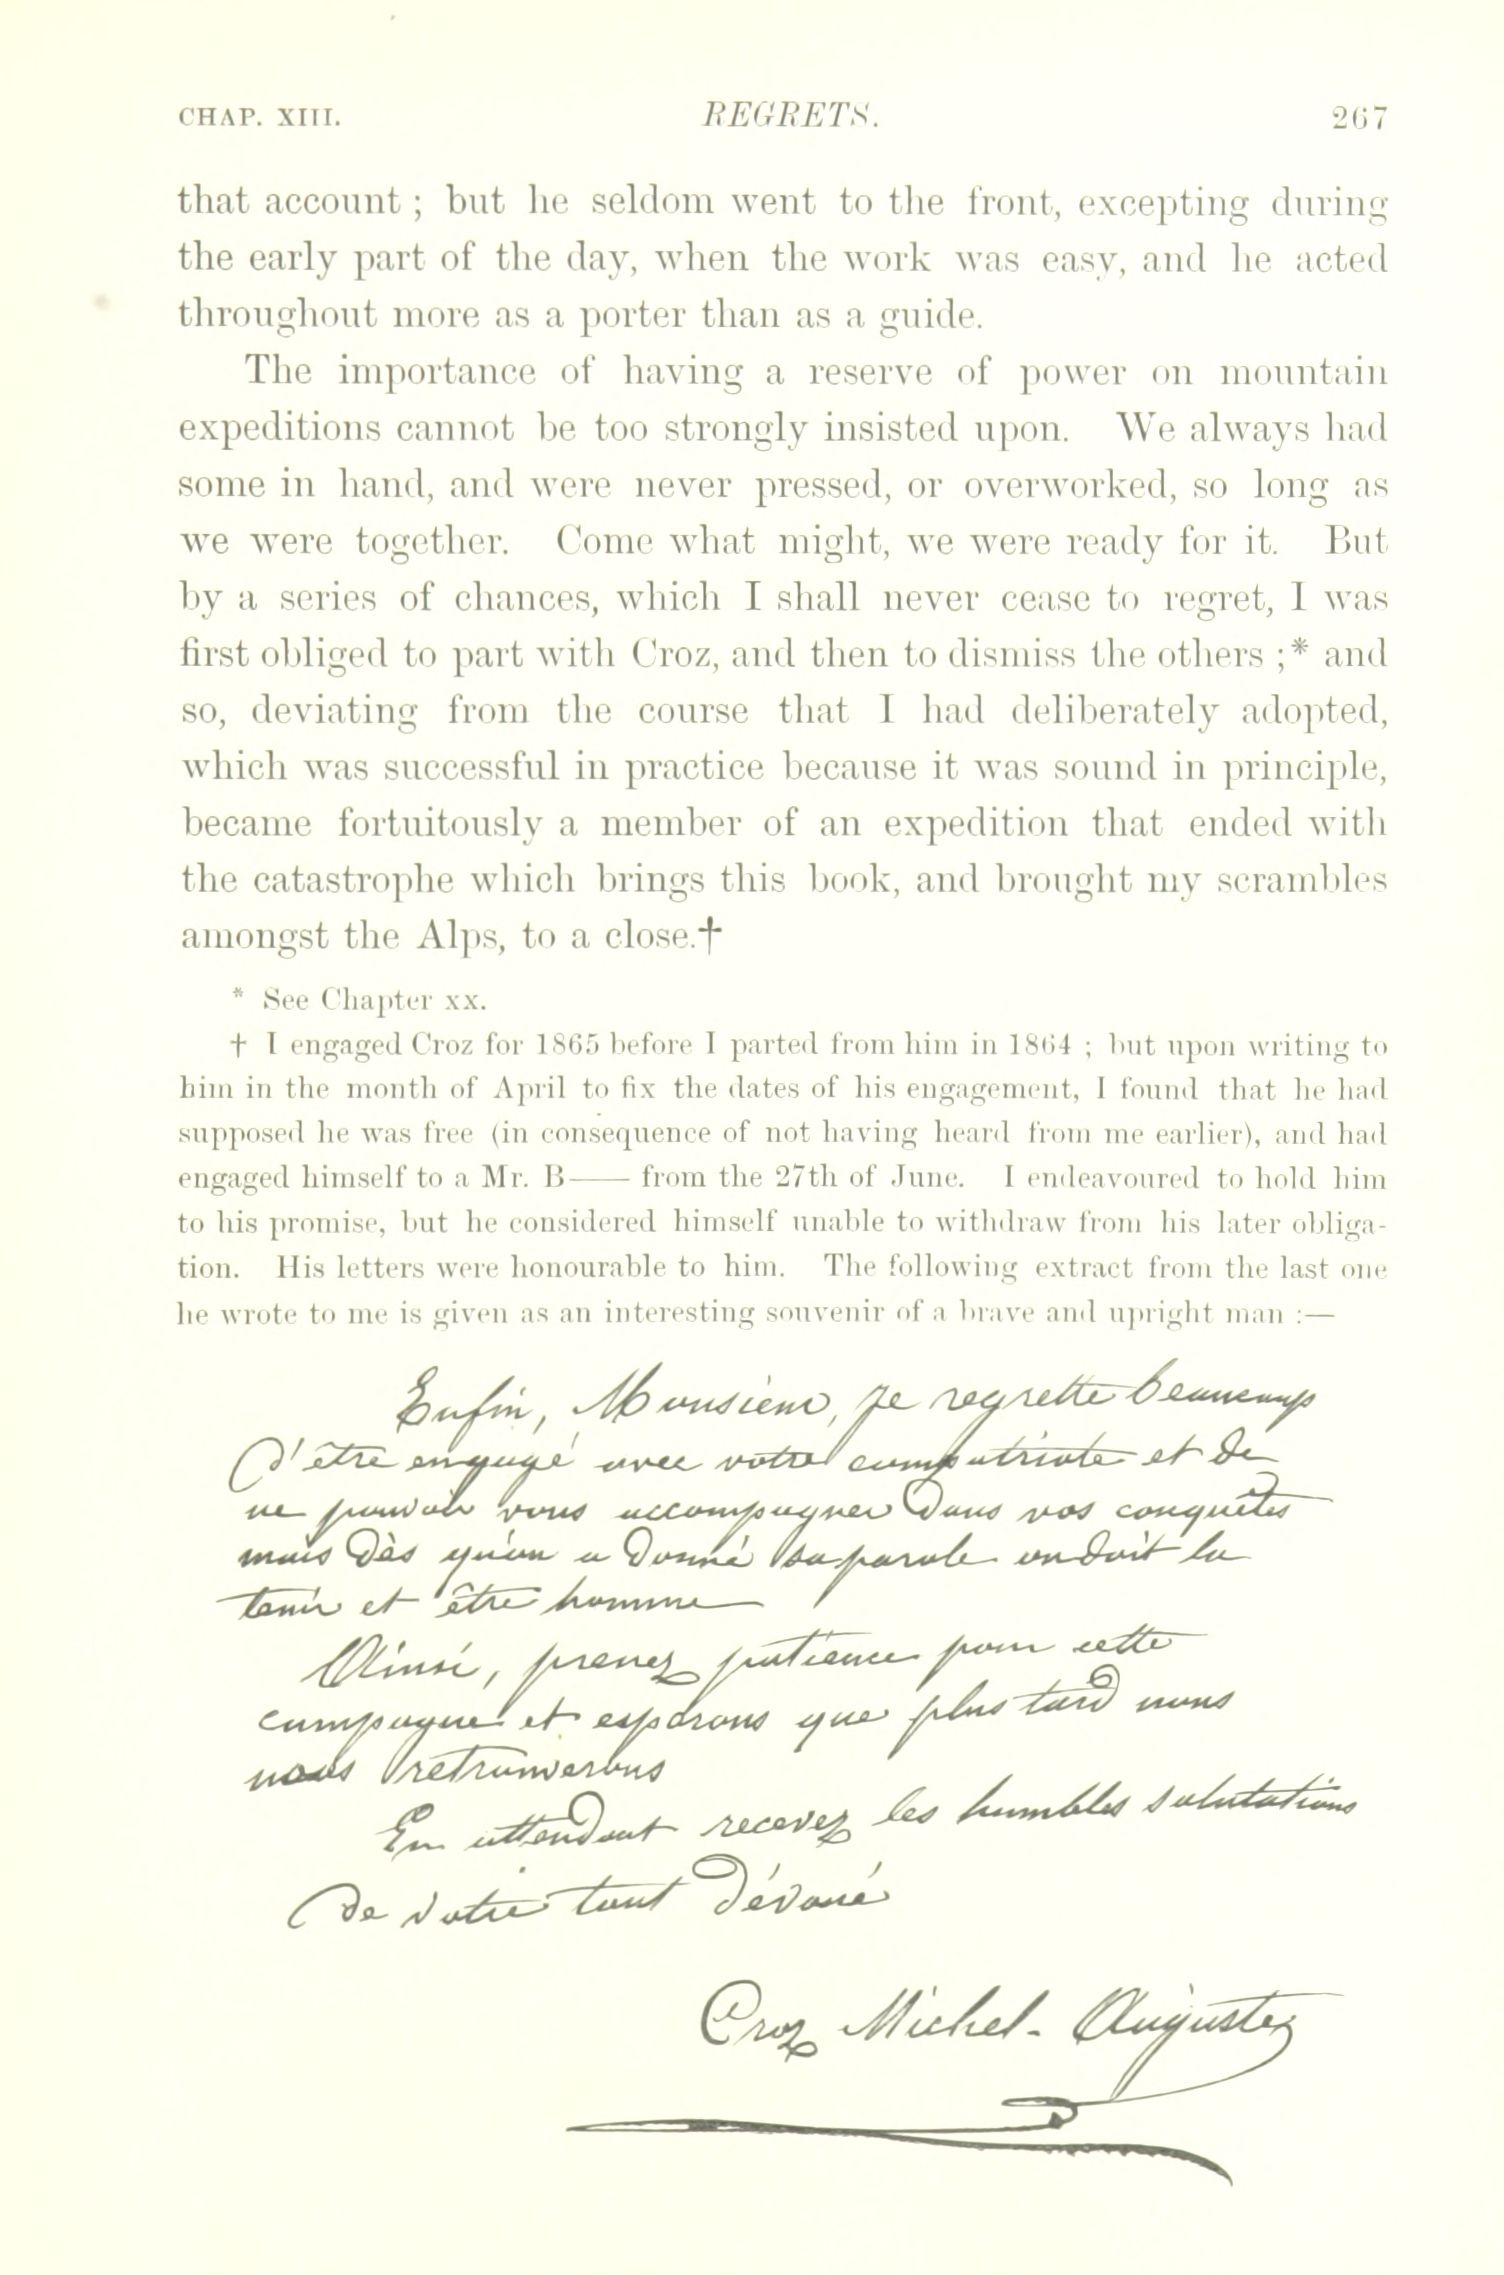 CHAP. XIII. REGRETS. 267
that account ; but he seldom went to the front, excepting during
the early part of the day, when the work was easy, and he acted
throughout more as a porter than as a guide.
The importance of having a reserve of power on mountain
expeditions cannot be too strongly insisted upon. We always had
some in hand, and were never pressed, or overworked, so long as
we were together. Come what might, we were ready for it. But
by a series of chances, which I shall never cease to regret, I was
first obliged to part with Croz, and then to dismiss the others ;* and
so, deviating from the course that I had deliberately adopted,
which was successful in practice because it was sound in principle,
became fortuitously a member of an expedition that ended with
the catastrophe which brings this book, and brought my scrambles
amongst the Alps, to a close.†
* See Chapter xx.
† I engaged Croz for 1865 before I parted from him in 1864 ; but upon writing to
him in the month of April to fix the dates of his engagement, I found that he had
supposed he was free (in consequence of not having heard from me earlier), and had
engaged himself to a Mr. B—— from the 27th of June. I endeavoured to hold him
to his promise, but he considered himself unable to withdraw from his later obliga-
tion. His letters were honourable to him. The following extract from the last one
he wrote to me is given as an interesting souvenir of a brave and upright man :—
Enfin, Monsieur, je regrette beaucoup
d'être engagé avec votre compatriote et de
ne pouvoir vous accompagner dans vos conquêtes
mais dès qu'on a donné sa parole on doit la
tenir et être homme
Ainsi, prenez patience pour cette
campagne et esperons que plus tard nous
nous retrouverons
En attendant recevez les humbles salutations
de votre tout dévoué
Croz Michel-Auguste